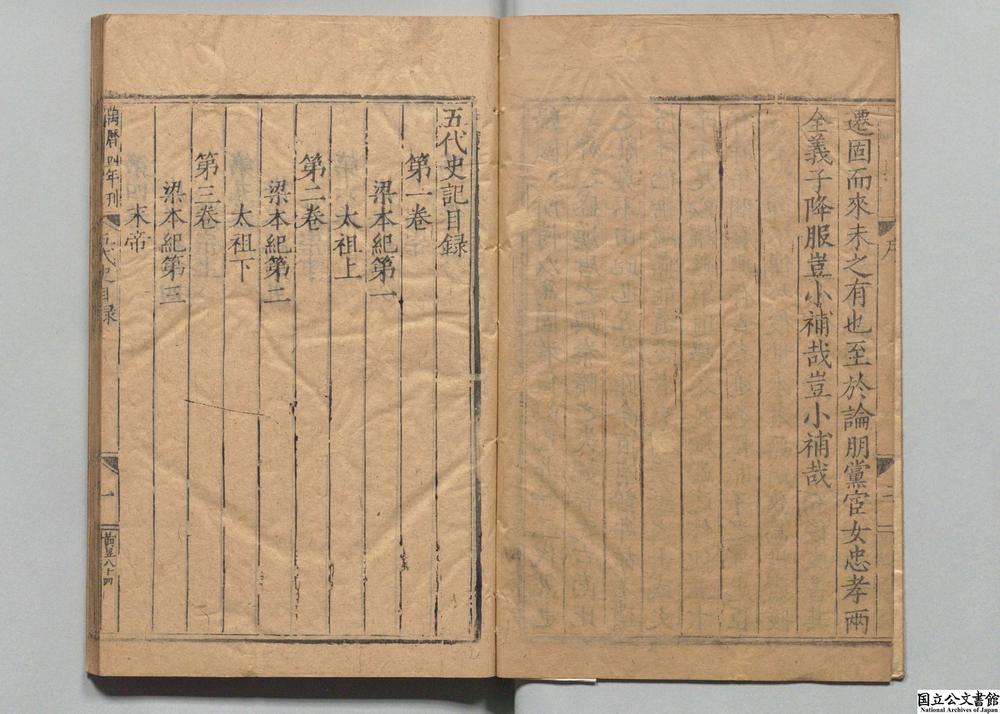 遷固而來未之有也至於論朋黨宦女忠孝兩
全義子降服豈小補哉豈小補哉
序
二
五代史記目録
第一卷
梁本紀第一
太祖上
第二卷
梁本紀第二
太祖下
第三卷
梁本紀第三
末帝
萬曆四年刊
五代史目録
一
国立公文書館
National Archives of Japan